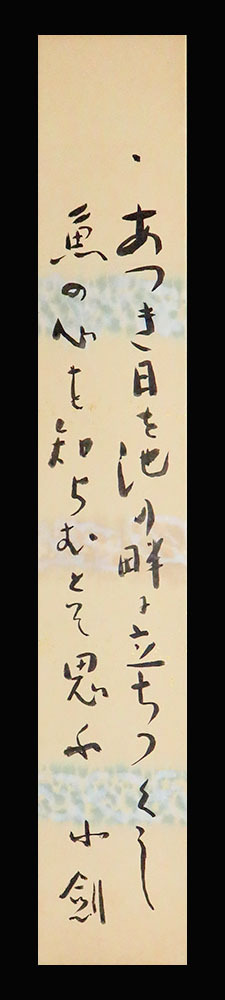 あつき日を池の畔に立ちつくし
魚の心を知らむとぞ思ふ 小剣